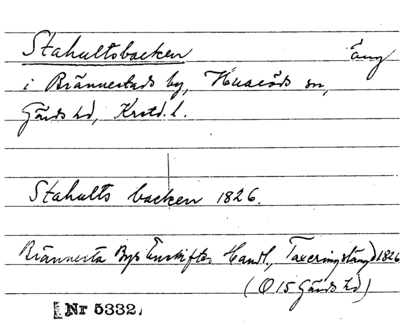 Stahultsbacken äng
i Brännestads by, Huaröds sn,
Gärds hd, Krstd. l.
Stahults backen 1826.
Brännesta Bys Enskiftes Handl., Taxeringslängd 1826
(O 15 Gärds hd)
Nr 5332.